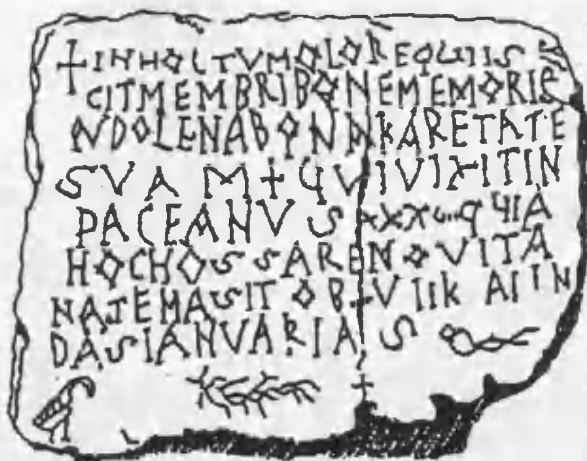 +INHOCTVMOLOREQVIIS
CITMEMBRIBONEMEMORIE
NDOLENABONAKARETATE
SVA M+QVIVIXITIN
PACEANVS XXX QVIA
HOCHOSSARENOVITA
NATEMASIT OB+VIIK AIIN
DASIANVARIAS